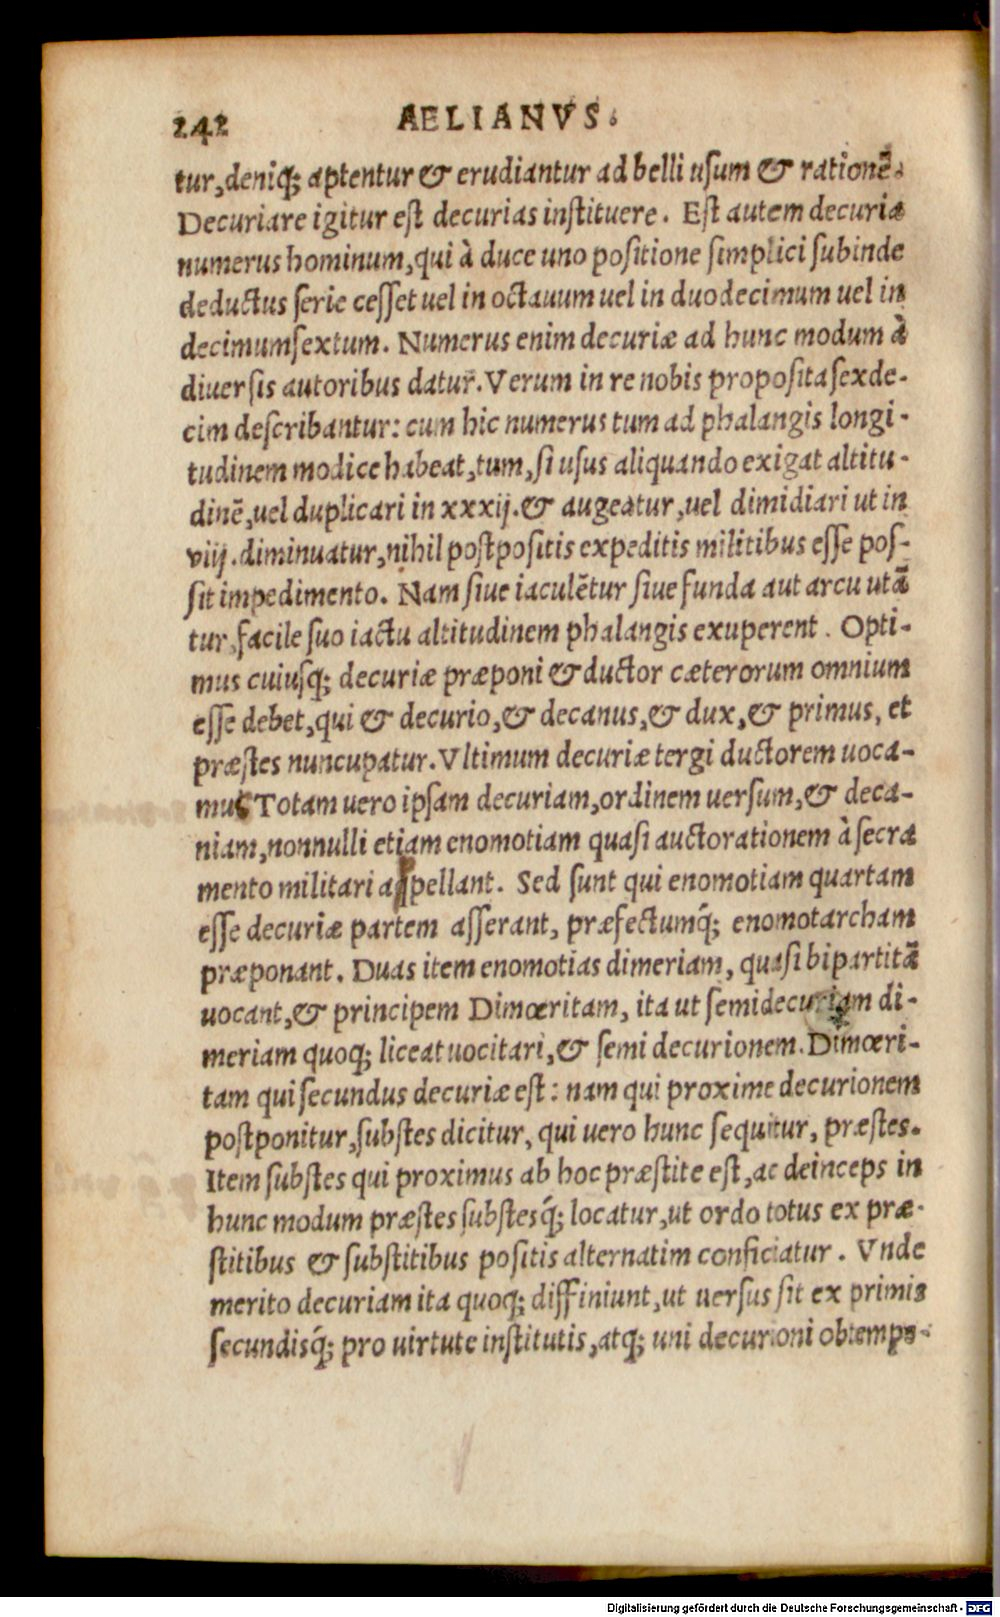 242 AELIANVS.
tur, deniq; aptentur & erudiantur ad belli usum & rationẽ.
Decuriare igitur est decurias instituere. Est autem decuria
numerus hominum, qui à duce uno positione simplici subinde
deductus serie cesset uel in octauum uel in duodecimum uel in
decimumsextum. Numerus enim decuriæ ad hunc modum à
diuersis autoribus datur. Verum in re nobis proposita sexde-
cim describantur: cum hic numerus tum ad phalangis longi-
tudinem modice habeat, tum, si usus aliquando exigat altitu-
dinẽ, uel duplicari in xxxij. & augeatur, uel dimidiari ut in
viij. diminuatur, nihil postpositis expeditis militibus esse pos-
sit impedimento. Nam siue iaculẽtur siue funda aut arcu utã
tur, facile suo iactu altitudinem phalangis exuperent. Opti-
mus cuiusq; decuriæ præponi & ductor cæterorum omnium
esse debet, qui & decurio, & decanus, & dux, & primus, et
præstes nuncupatur. Vltimum decuriæ tergi ductorem uoca-
mus Totam uero ipsam decuriam, ordinem uersum, & deca-
niam, nonnulli etiam enomotiam quasi auctorationem à secra
mento militari appellant. Sed sunt qui enomotiam quartam
esse decuriæ partem asserant, præfectumq́; enomotarcham
præponant. Duas item enomotias dimeriam, quasi bipartitã
uocant, & principem Dimœritam, ita ut semidecuriam di-
meriam quoq; liceat uocitari, & semi decurionem. Dimœri-
tam qui secundus decuriæ est: nam qui proxime decurionem
postponitur, substes dicitur, qui uero hunc sequitur, præstes.
Item substes qui proximus ab hoc præstite est, ac deinceps in
hunc modum præstes substesq́; locatur, ut ordo totus ex præ-
stitibus & substitibus positis alternatim conficiatur. Vnde
merito decuriam ita quoq; diffiniunt, ut uersus sit ex primis
secundisq́; pro uirtute institutis, atq; uni decurioni obtempe-
Digitalisierung gefördert durch die Deutsche Forschungsgemeinschaft - DFG